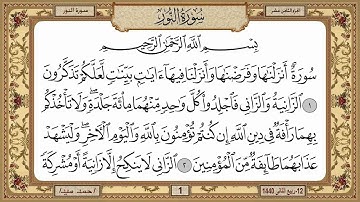 الجزء الثامن عشر
سورة النور
سُورَةُ النُّورِ
بِسْمِ اللَّهِ الرَّحْمَٰنِ الرَّحِيمِ
سُورَةٌ أَنزَلْنَاهَا وَفَرَضْنَاهَا وَأَنزَلْنَا فِيهَا ءَايَاتٍ بَيِّنَاتٍ لَّعَلَّكُمْ تَذَكَّرُونَ
١ الزَّانِيَةُ وَالزَّانِي فَاجْلِدُوا كُلَّ وَاحِدٍ مِّنْهُمَا مِائَةَ جَلْدَةٍ وَلَا تَأْخُذْكُم
بِهِمَا رَأْفَةٌ فِي دِينِ اللَّهِ إِن كُنتُمْ تُؤْمِنُونَ بِاللَّهِ وَالْيَوْمِ الْآخِرِ وَلْيَشْهَدْ
عَذَابَهُمَا طَائِفَةٌ مِّنَ الْمُؤْمِنِينَ ٢ الزَّانِي لَا يَنكِحُ إِلَّا زَانِيَةً أَوْ مُشْرِكَةً
12-ربيع الثاني 1440
1